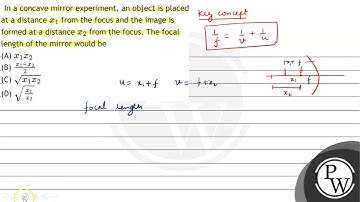 In a concave mirror experiment, an object is placed
at a distance x₁ from the focus and the image is
formed at a distance x₂ from the focus. The focal
length of the mirror would be
(A) x₁x₂
(B) (x₁+x₂)/2
(C) √(x₁x₂)
(D) √(x₁/x₂)
Key concept
1/f = 1/v + 1/u
u = x₁ + f v = f + x₂
focal length
x₁ f
x₂
PW